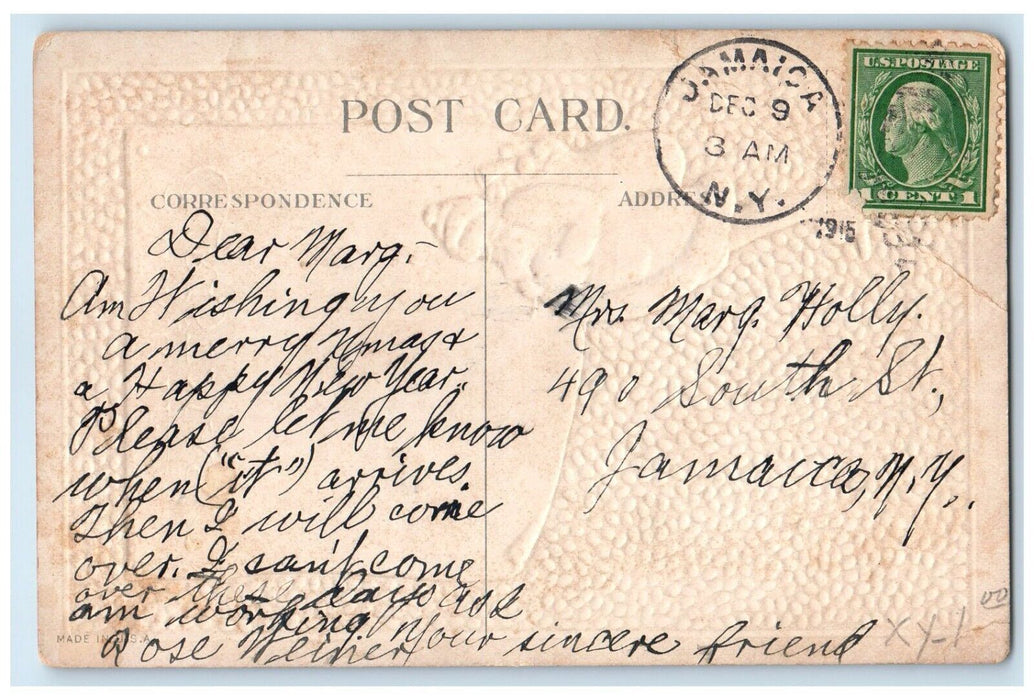 POST CARD.
JAMAICA
DEC 9
3 AM
N.Y.
1915
U.S.POSTAGE
1 CENT 1
CORRESPONDENCE
Dear Marg.-
Am Wishing you
a merry Xmas &
a Happy New Year.
Please let me know
when ("it") arrives.
Then I will come
over. I can't come
over these days as I
am working
Your sincere friend
Rose Weiner
ADDRE
Mrs. Marg. Holly.
490 South St.,
Jamaica, N.Y.
MADE IN U.S.A.
XY-1
00